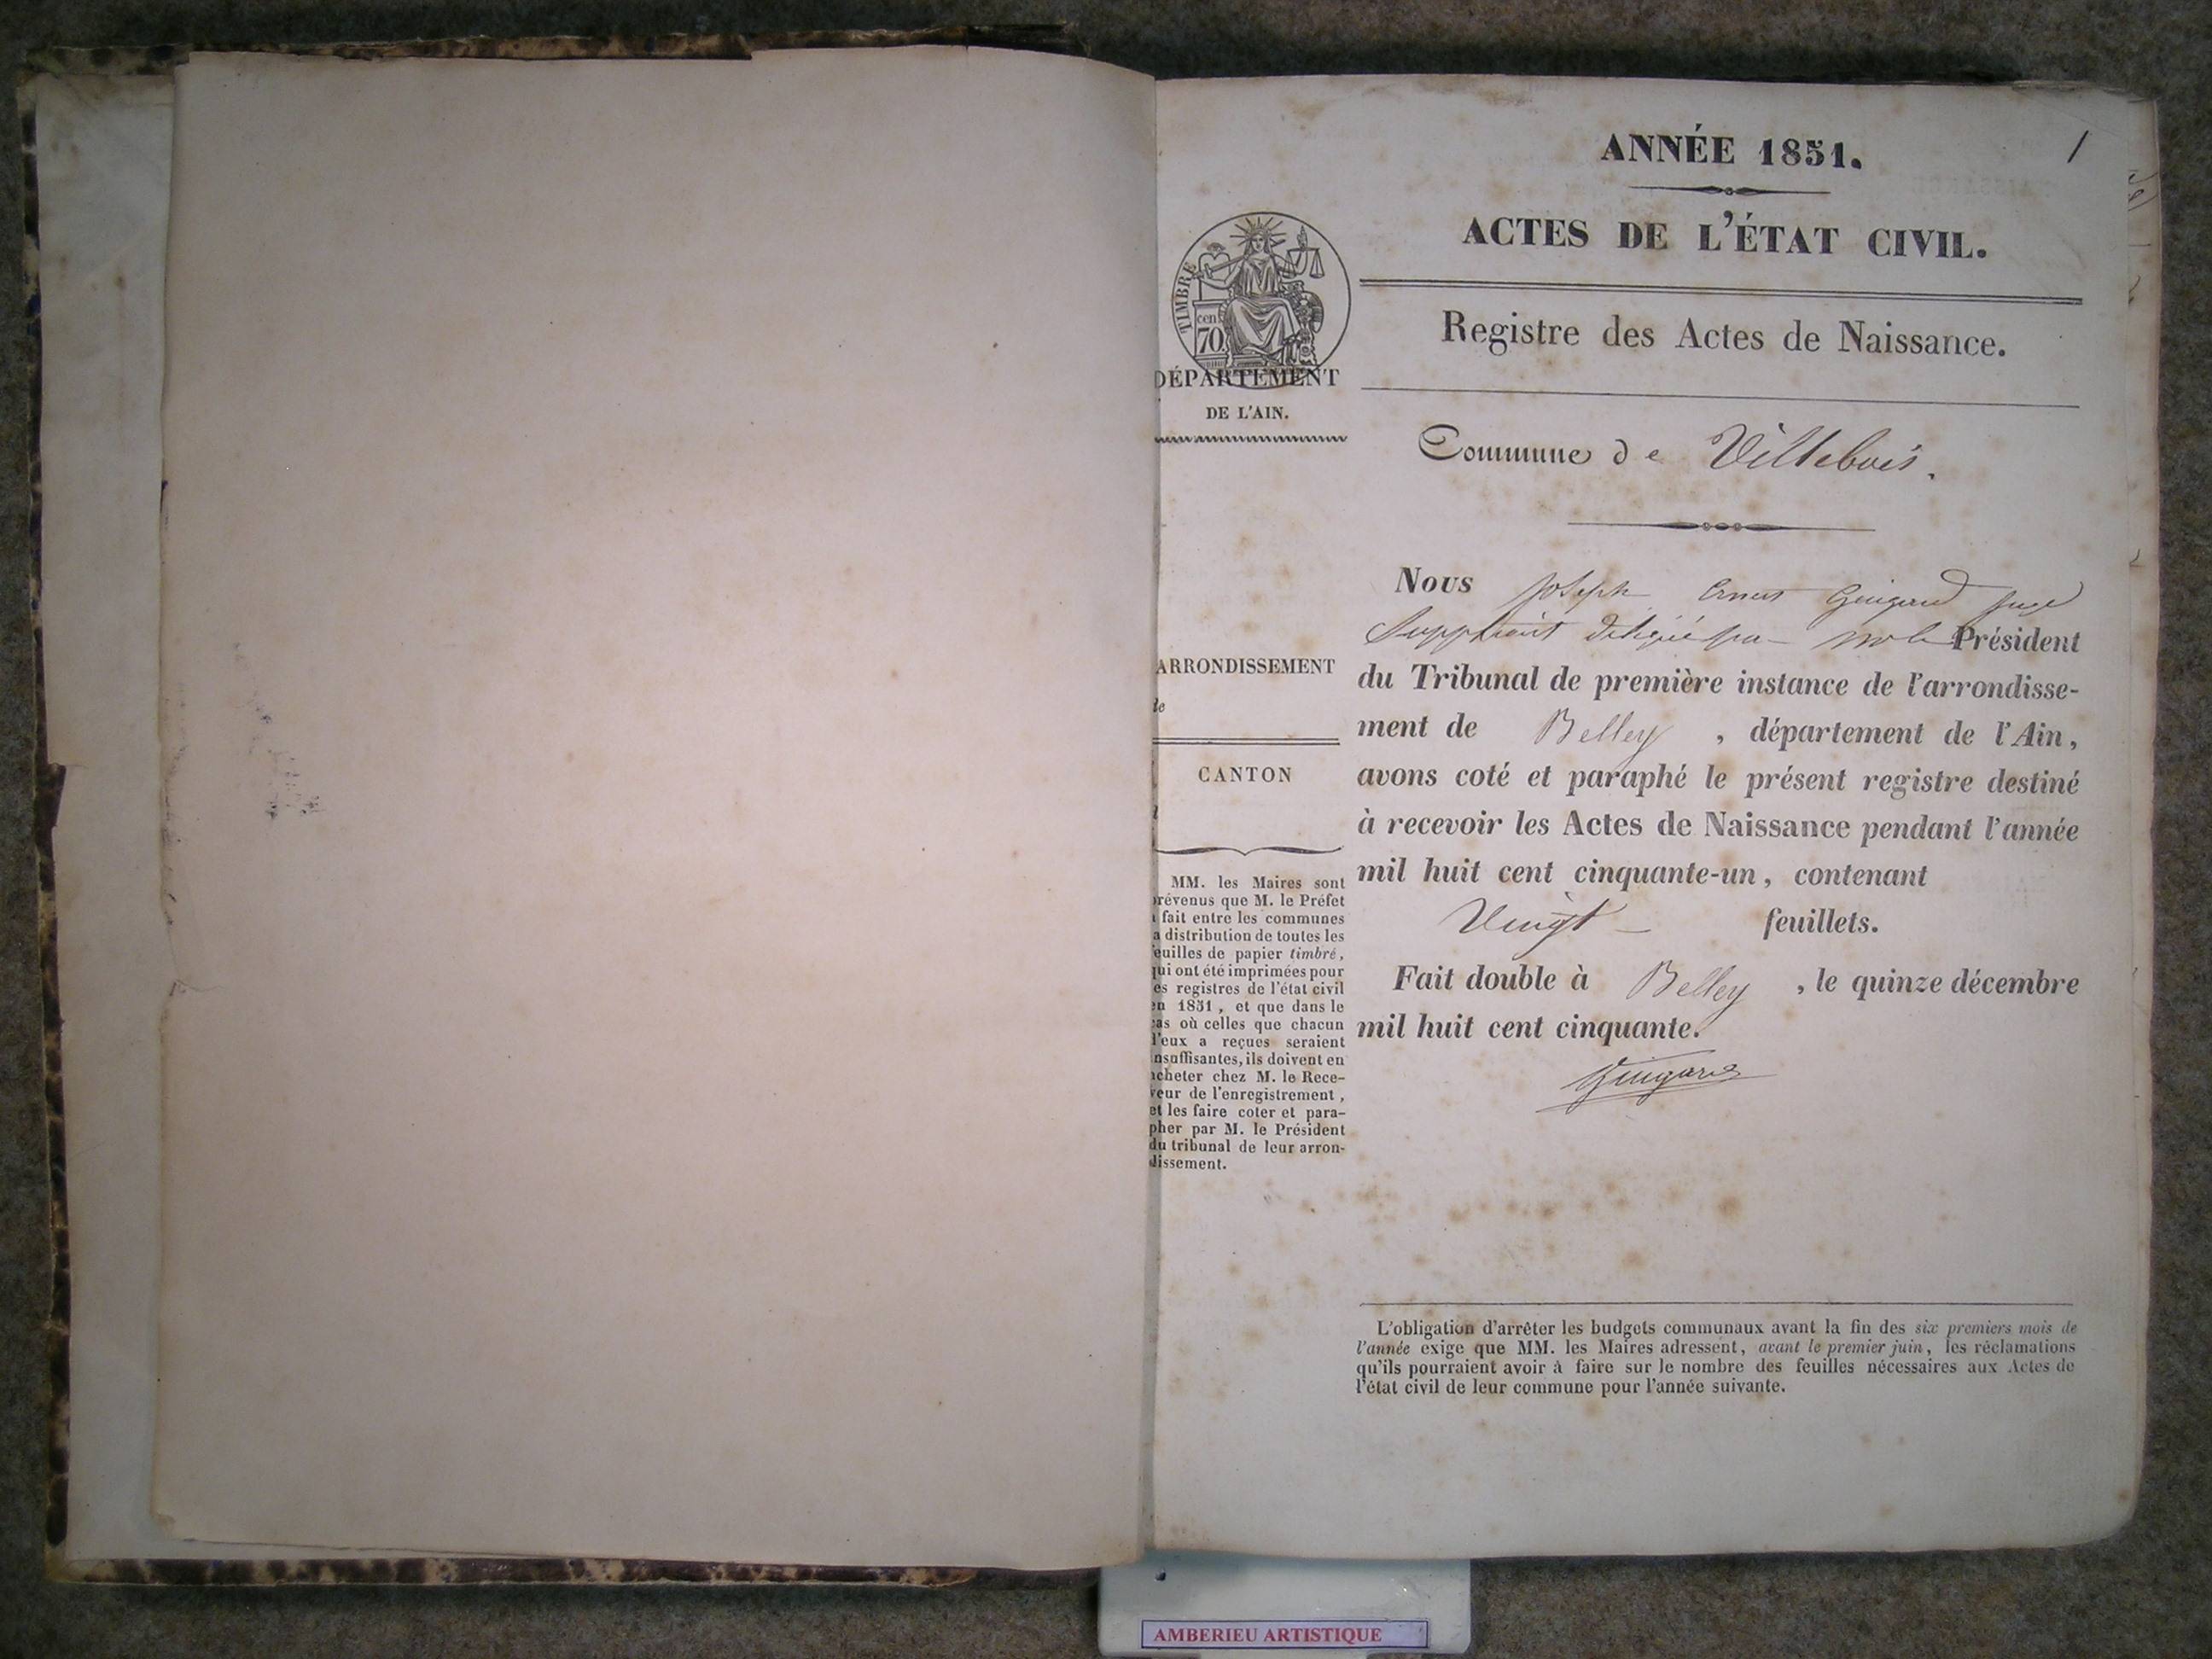 ANNÉE 1851.
1
ACTES DE L'ÉTAT CIVIL.
TIMBRE
cent
70
Registre des Actes de Naissance.
DÉPARTEMENT
DE L'AIN.
Commune de Villebois.
Nous Joseph Guigard Juge
Suppléant Président
ARRONDISSEMENT
de
du Tribunal de première instance de l'arrondisse-
ment de Belley, département de l'Ain,
CANTON
avons coté et paraphé le présent registre destiné
à recevoir les Actes de Naissance pendant l'année
mil huit cent cinquante-un, contenant
Vingt feuillets.
Fait double à Belley, le quinze décembre
mil huit cent cinquante.
Guigard
MM. les Maires sont
prévenus que M. le Préfet
a fait entre les communes
la distribution de toutes les
feuilles de papier timbré,
qui ont été imprimées pour
les registres de l'état civil
en 1851, et que dans le
cas où celles que chacun
d'eux a reçues seraient
insuffisantes, ils doivent en
acheter chez M. le Rece-
veur de l'enregistrement,
et les faire coter et para-
pher par M. le Président
du tribunal de leur arron-
dissement.
L'obligation d'arrêter les budgets communaux avant la fin des six premiers mois de
l'année exige que MM. les Maires adressent, avant le premier juin, les réclamations
qu'ils pourraient avoir à faire sur le nombre des feuilles nécessaires aux Actes de
l'état civil de leur commune pour l'année suivante.
AMBERIEU ARTISTIQUE